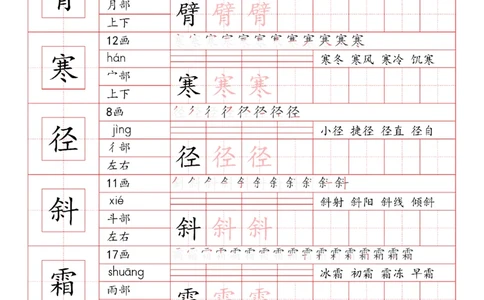 臂 月部 臂 臂 臂
上下
12画
寒 hán 寒冬 寒风 寒冷 饥寒
宀部 寒 寒 寒
上下
8画
径 jìng 小径 捷径 径直 径自
彳部 径 径 径
左右
11画
斜 xié 斜射 斜阳 斜线 倾斜
斗部 斜 斜 斜
左右
17画
霜 shuāng 冰霜 初霜 霜冻 早霜
雨部 霜 霜 霜